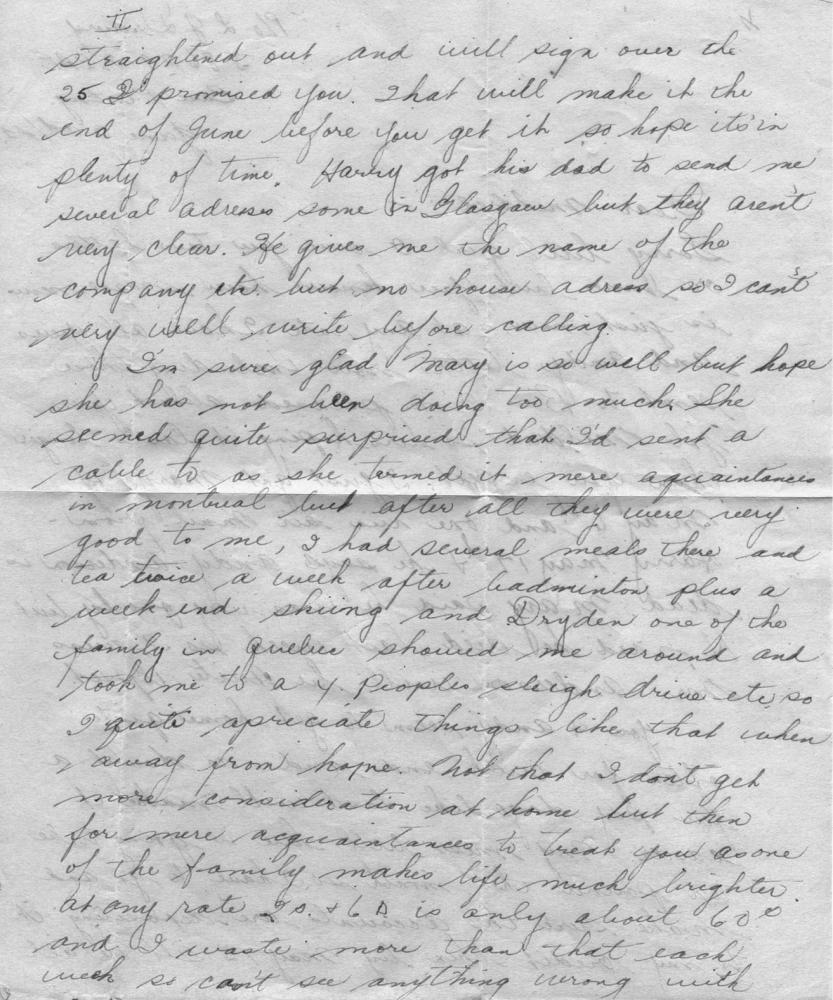 II
straightened out and will sign over the
25 I promised you. That will make it the
end of June before you get it so hope it's in
plenty of time. Harry got his dad to send me
several adress some in Glasgaw but they aren't
very clear. He gives me the name of the
company etc. but no house adress so I can't
very well write before calling.
I'm sure glad Mary is so well but hope
she has not been doing too much. She
seemed quite surprised that I'd sent a
cable to as she termed it mere aquaintances
in montreal but after all they were very
good to me, I had several meals there and
tea twice a week after badminton plus a
week end skiing and Dryden one of the
family in Quebec showed me around and
took me to a Y. Peoples sleigh drive etc, so
I quite apreciate things like that when
away from home. Not that I don't get
more consideration at home but then
for mere acquaintances to treat you as one
of the family makes life much brighter.
at any rate 2s. + 6 D is only about 60¢
and I waste more than that each
week so can't see anything wrong with